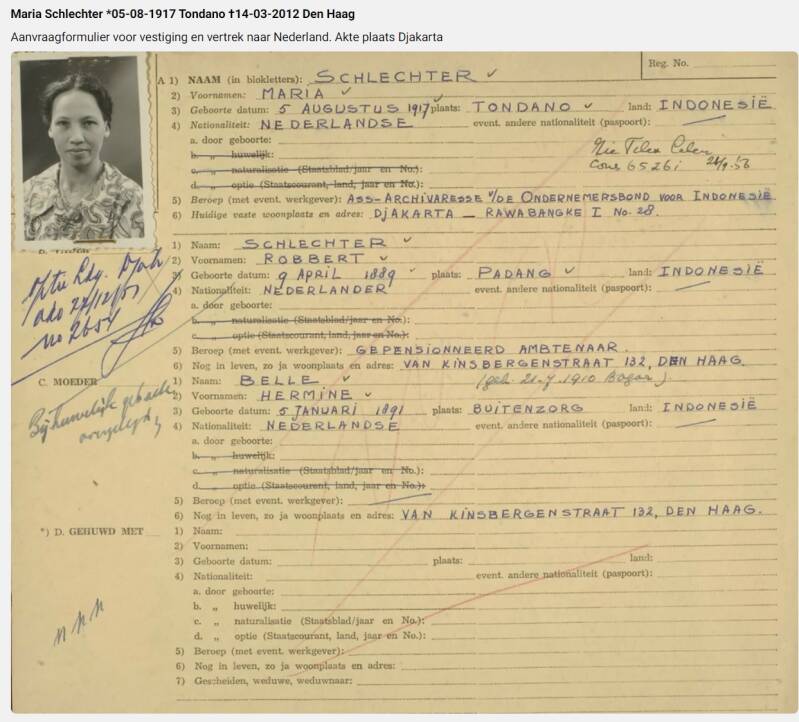 Maria Schlechter *05-08-1917 Tondano †14-03-2012 Den Haag
Aanvraagformulier voor vestiging en vertrek naar Nederland. Akte plaats Djakarta
Reg. No.
A 1) NAAM (in blokletters): SCHLECHTER
2) Voornamen: MARIA
3) Geboorte datum: 5 AUGUSTUS 1917 plaats: TONDANO land: INDONESIË
4) Nationaliteit: NEDERLANDSE event. andere nationaliteit (paspoort):
a. door geboorte:
b. „ huwelijk:
c. „ naturalisatie (Staatsblad/jaar en No.):
d. „ optie (Staatscourant, land, jaar en No.):
5) Beroep (met event. werkgever): ASS-ARCHIVARESSE v/DE ONDERNEMERSBOND VOOR INDONESIË
6) Huidige vaste woonplaats en adres: DJAKARTA – RAWABANGKE I No. 28.
1) Naam: SCHLECHTER
2) Voornamen: ROBBERT
3) Geboorte datum: 9 APRIL 1889 plaats: PADANG land: INDONESIË
4) Nationaliteit: NEDERLANDER event. andere nationaliteit (paspoort):
a. door geboorte:
b. „ naturalisatie (Staatsblad/jaar en No.):
c. „ optie (Staatscourant, land, jaar en No.):
5) Beroep (met event. werkgever): GEPENSIONNEERD AMBTENAAR.
6) Nog in leven, zo ja woonplaats en adres: VAN KINSBERGENSTRAAT 132, DEN HAAG.
C. MOEDER
1) Naam: BELLE (geh. 21-7-1910 Bogor)
2) Voornamen: HERMINE
3) Geboorte datum: 5 JANUARI 1891 plaats: BUITENZORG land: INDONESIË
4) Nationaliteit: NEDERLANDSE event. andere nationaliteit (paspoort):
a. door geboorte:
b. „ huwelijk:
c. „ naturalisatie (Staatsblad/jaar en No.):
d. „ optie (Staatscourant, land, jaar en No.):
5) Beroep (met event. werkgever):
6) Nog in leven, zo ja woonplaats en adres: VAN KINSBERGENSTRAAT 132, DEN HAAG.
*) D. GEHUWD MET
1) Naam:
2) Voornamen:
3) Geboorte datum: plaats: land:
4) Nationaliteit: event. andere nationaliteit (paspoort):
a. door geboorte:
b. „ huwelijk:
c. „ naturalisatie (Staatsblad/jaar en No.):
d. „ optie (Staatscourant, land, jaar en No.):
5) Beroep (met event. werkgever):
6) Nog in leven, zo ja woonplaats en adres:
7) Gescheiden, weduwe, weduwnaar: